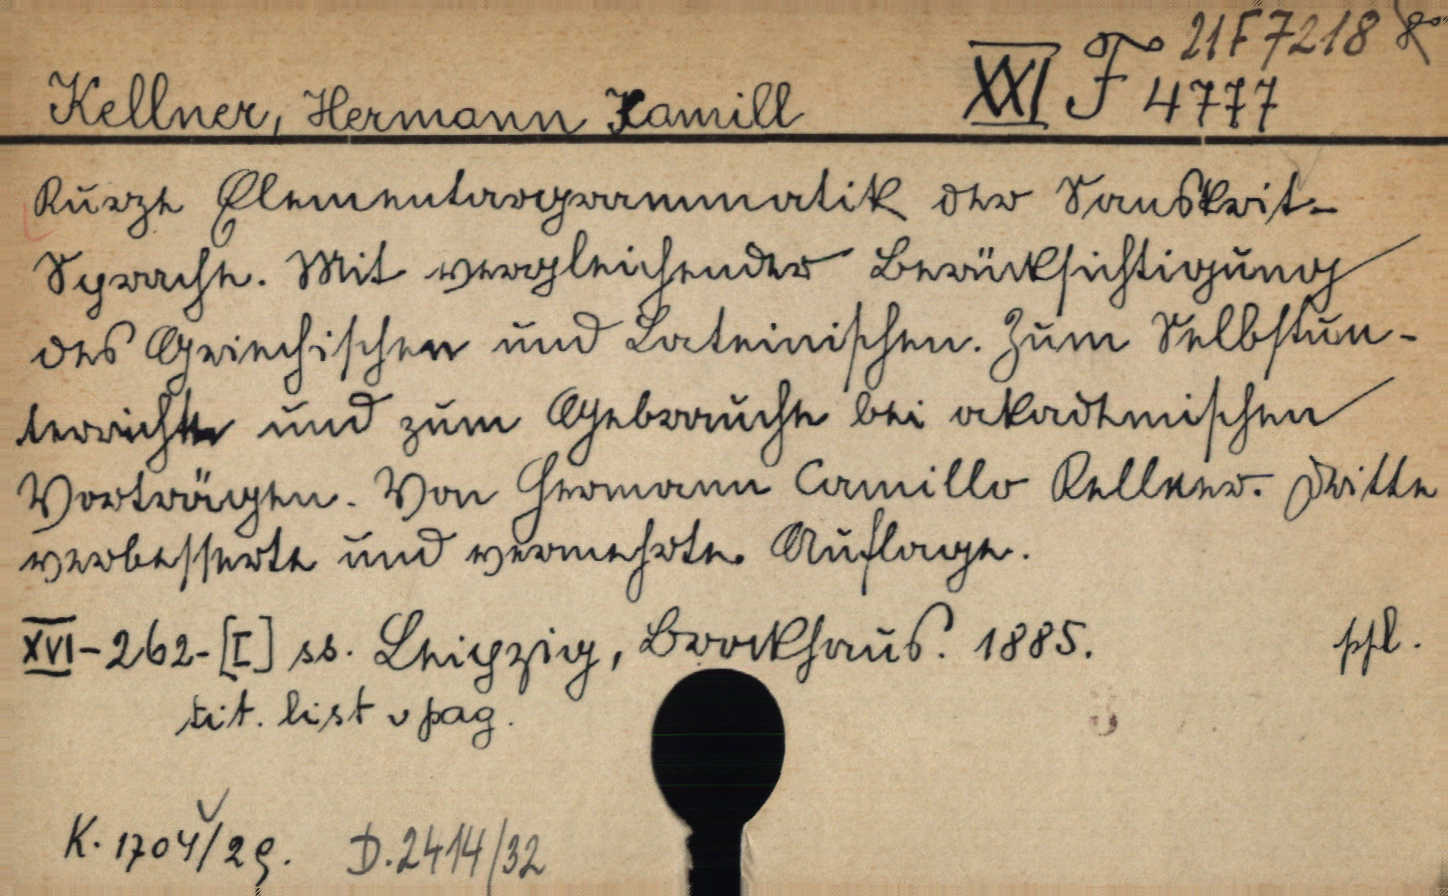 21F7218 8°
Kellner, Hermann Kamill XXI F 4777
Kurze Elementargrammatik der Sanskrit-
Sprache. Mit vergleichender Berücksichtigung
des Griechischen und Lateinischen. Zum Selbstun-
terrichte und zum Gebrauche bei akademischen
Vorträgen. Von Hermann Camillo Kellner. Dritte
verbesserte und vermehrte Auflage.
XVI-262-[I] ss. Leipzig, Brockhaus. 1885. ppl.
tit. list v pag.
K. 1704/29. D.2414/32